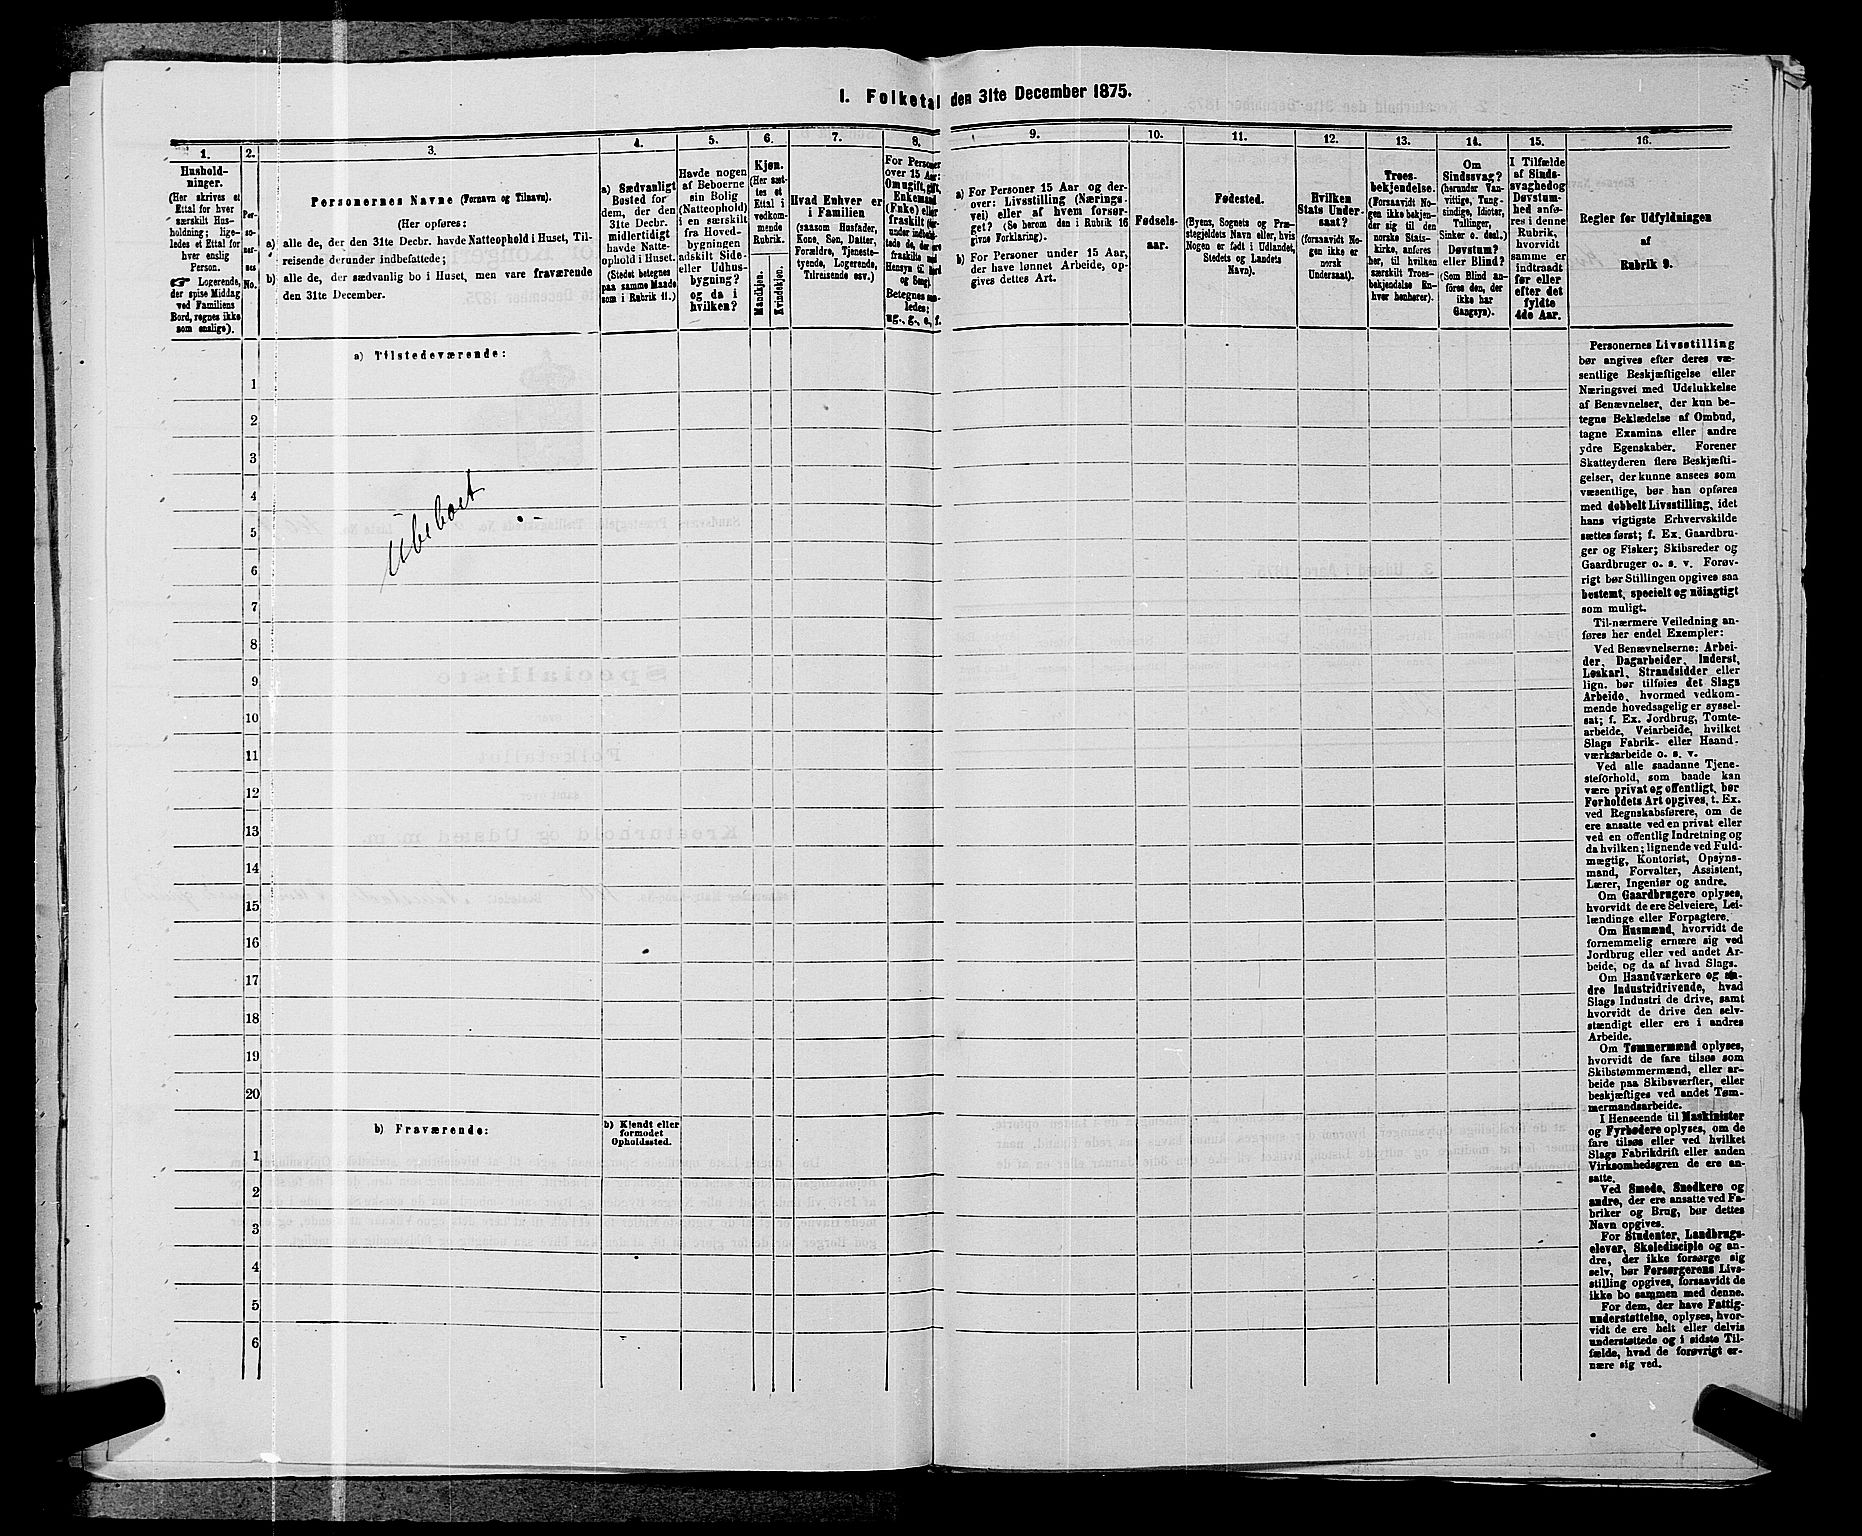 1. Folketal den 31te December 1875.
1. 2. 3. 4. 5. 6. 7. 8. 9. 10. 11. 12. 13. 14. 15. 16.
Hushold-
ninger.
(Her skrives et
Ettal for hver
særskilt Hus-
holdning; lige-
ledes et Ettal for
hver enslig
Person.
☞ Logerende,
der spise Middag
ved Familiens
Bord, regnes ikke
som enslige).
Per-
so-
ner-
nes
No.
Personernes Navne (Fornavn og Tilnavn).
(Her opføres:
a) alle de, der den 31te Decbr. havde Natteophold i Huset, Til-
reisende derunder indbefattede;
b) alle de, der sædvanlig bo i Huset, men vare fraværende
den 31te December.
a) Sædvanligt
Bosted for
dem, der den
31te Decbr.
midlertidigt
havde Natte-
ophold i Huset.
(Stedet betegnes
paa samme Maade
som i Rubrik 11.)
Havde nogen
af Beboerne
sin Bolig
(Natteophold)
i en særskilt
fra Hoved-
bygningen
adskilt Side-
eller Udhus-
bygning?
og da i
hvilken?
Kjøn.
(Her sæt-
tes et
Ettal i
vedkom-
mende
Rubrik.
Mandkjøn.
Kvindekjøn.
Hvad Enhver er
i Familien
(saasom Husfader,
Kone, Søn, Datter,
Forældre, Tjeneste-
tyende, Logerende,
Tilreisende osv.)
For Personer
over 15 Aar:
Om ugift, gift,
Enkemand
(Enke) eller
fraskilt (her-
under indbefat-
tede de, der ere
fraskilte med
Hensyn til Bord
og Seng).
Betegnes saa-
ledes:
ug., g., e., f.
a) For Personer 15 Aar og der-
over: Livsstilling (Nærings-
vei) eller af hvem forsør-
get? (Se herom den i Rubrik 16
givne Forklaring).
b) For Personer under 15 Aar,
der have lønnet Arbeide, op-
gives dettes Art.
Fødsels-
aar.
Fødested.
(Byens, Sognets og Præ-
stegjeldets Navn eller, hvis
Nogen er født i Udlandet,
Stedets og Landets
Navn).
Hvilken
Stats Under-
saat?
(forsaavidt No-
gen ikke er
norsk
Undersaat).
Troes-
bekjendelse.
(Forsaavidt No-
gen ikke bekjen-
der sig til den
norske Stats-
kirke, anføres
her, til hvilken
særskilt Troes-
bekjendelse En-
hver henhører).
Om
Sindssvag?
(herunder Van-
vittige, Tung-
sindige, Idioter,
Tullinger,
Sinker o. desl.)
Døvstum?
eller Blind?
(Som Blind an-
føres den, der
ikke har
Gangsyn).
I Tilfælde
af Sinds-
svaghed og
Døvstum-
hed anfø-
res i denne
Rubrik,
hvorvidt
samme er
indtraadt
før eller
efter det
fyldte
4de Aar.
Regler for Udfyldningen
af
Rubrik 9.
a) Tilstedeværende:
1
2
3
4
5
6
7
8
9
10
11
12
13
14
15
16
17
18
19
20
Ubeboet
b) Fraværende:
b) Kjendt eller
formodet
Opholdssted.
1
2
3
4
5
6
Personernes Livsstilling
bør angives efter deres væ-
sentlige Beskjæftigelse eller
Næringsvei med Udelukkelse
af Benævnelser, der kun be-
tegne Beklædelse af Ombud,
tagne Examina eller andre
ydre Egenskaber. Forener
Skatteyderen flere Beskjæfti-
gelser, der kunne ansees som
væsentlige, bør han opføres
med dobbelt Livsstilling, idet
hans vigtigste Erhvervskilde
sættes først; f. Ex. Gaardbru-
ger og Fisker; Skibsreder og
Gaardbruger o. s. v. Forøv-
rigt bør Stillingen opgives saa
bestemt, specielt og nöiagtigt
som muligt.
Til nærmere Veiledning an-
føres her endel Exempler:
Ved Benævnelserne: Arbei-
der, Dagarbeider, Inderst,
Løskarl, Strandsidder eller
lign. bør tilføies det Slags
Arbeide, hvormed vedkom-
mende hovedsagelig er syssel-
sat; f. Ex. Jordbrug, Tomte-
arbeide, Veiarbeide, hvilket
Slags Fabrik- eller Haand-
værksarbeide o. s. v.
Ved alle saadanne Tjene-
steforhold, som baade kan
være privat og offentligt, bør
Forholdets Art opgives, t. Ex.
ved Regnskabsførere, om de
ere ansatte ved en privat eller
ved en offentlig Indretning og
da hvilken; lignende ved Fuld-
mægtig, Kontorist, Opsyns-
mand, Forvalter, Assistent,
Lærer, Ingeniør og andre.
Om Gaardbrugere oplyses,
hvorvidt de ere Selveiere, Lei-
lændinge eller Forpagtere.
Om Husmænd, hvorvidt de
fornemmelig ernære sig ved
Jordbrug eller ved andet Ar-
beide, og da af hvad Slags.
Om Haandværkere og an-
dre Industridrivende, hvad
Slags Industri de drive, samt
hvorvidt de drive den selv-
stændigt eller ere i andres
Arbeide.
Om Tømmermænd oplyses,
hvorvidt de fare tilsøs som
Skibstømmermænd, eller ar-
beide paa Skibsværfter, eller
beskjæftiges ved andet Tøm-
mermandsarbeide.
I Henseende til Maskinister
og Fyrbødere oplyses, om de
fare tilsøs eller ved hvilket
Slags Fabrikdrift eller anden
Virksomhedsgren de ere an-
satte.
Ved Smede, Snedkere og
andre, der ere ansatte ved Fa-
briker og Brug, bør dettes
Navn opgives.
For Studenter, Landbrugs-
elever, Skoledisciple og an-
dre, der ikke forsørge sig
selv, bør Forsørgerens Livs-
stilling opgives, forsaavidt de
ikke bo sammen med denne.
For dem, der have Fattig-
understøttelse, oplyses, hvor-
vidt de ere helt eller delvis
understøttede og i sidste Til-
fælde, hvad de forøvrigt er-
nære sig ved.